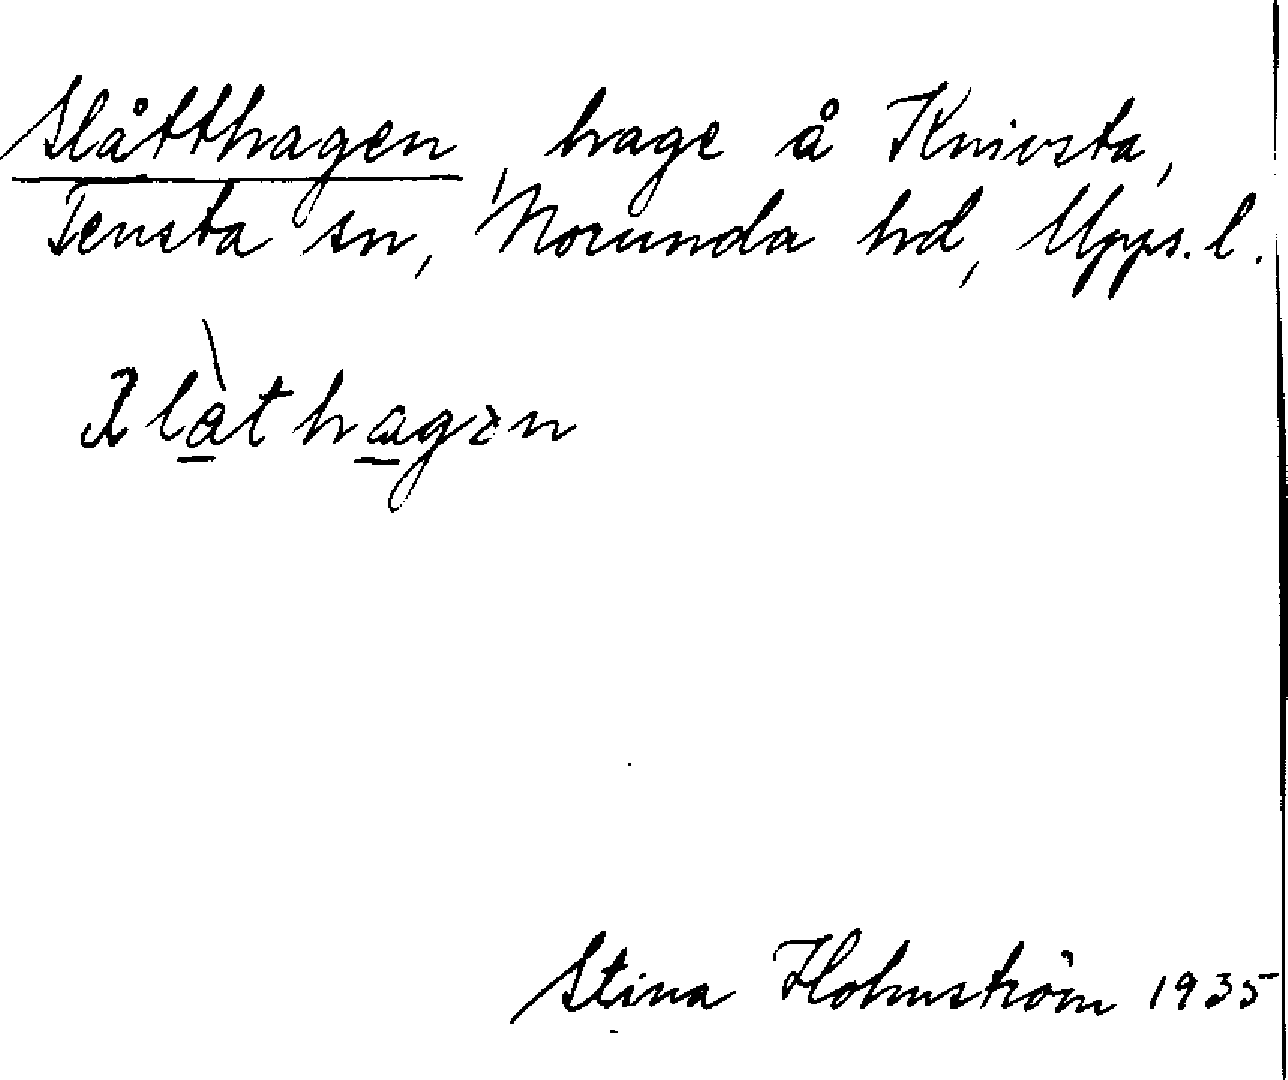 Slåtthagen, hage å Knivsta,
Tensta sn, Norunda hd, Upps. l.
Stina Holmström 1935